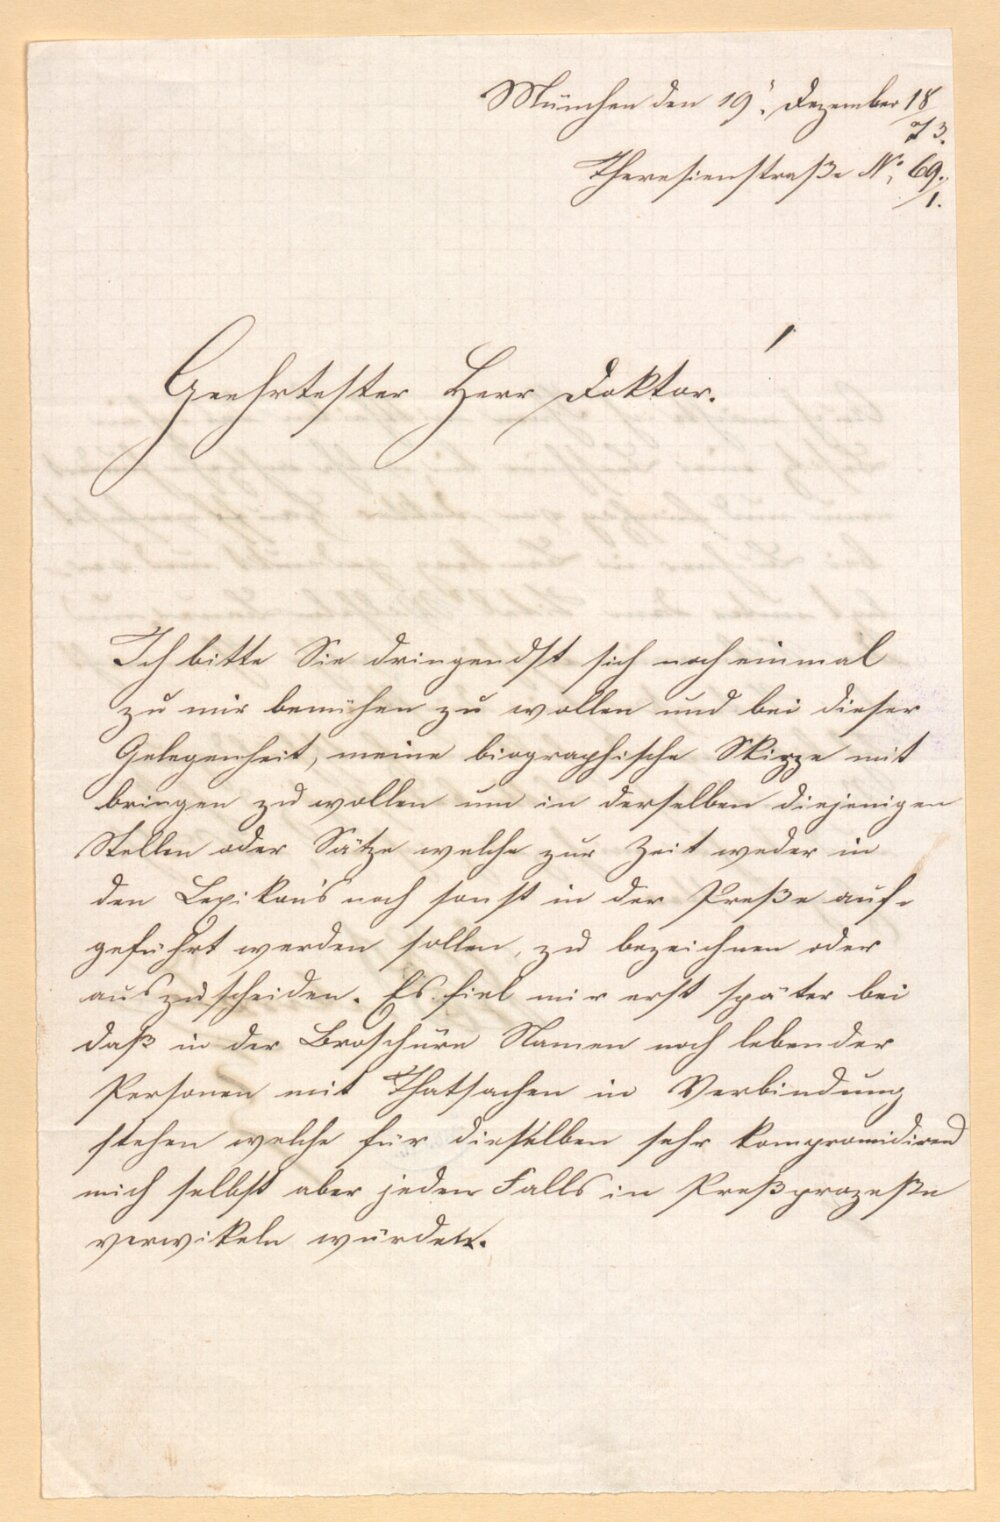 München den 19. Dezember 18/73.
Theresienstraße No. 69./1.
Geehrtester Herr Doktor!
Ich bitte Sie dringendst sich noch einmal
zu mir bemühen zu wollen und bei dieser
Gelegenheit, meine biographische Skizze mit
bringen zu wollen um in derselben diejenigen
Stellen oder Sätze welche zur Zeit weder in
den Lexikon's noch sonst in der Preße auf-
geführt werden sollen, zu bezeichnen oder
auszuscheiden. Es fiel mir erst später bei
daß in der Broschüre Namen noch lebender
Personen mit Thatsachen in Verbindung
stehen welche für dieselben sehr kompromidirend
mich selbst aber jeden Falls in Preßprozeße
verwikeln würden.